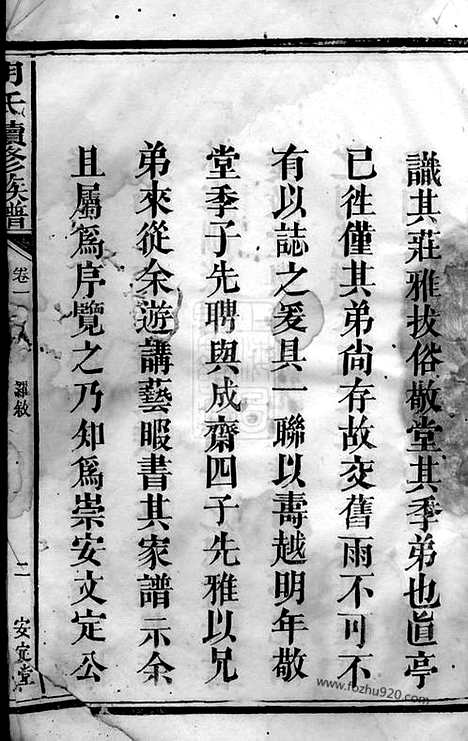 識其莊雅拔俗敬堂其季弟也眞亭
已徃僅其弟尚存故交舊雨不可不
有以誌之爰具一聯以壽越明年敬
堂季子先聘與成齋四子先雅以兄
弟來從余遊講藝暇書其家譜示余
且屬爲序覽之乃知爲崇安文定公
氏續修族譜
卷一
敘
二
安定堂
www.fozhu920.com